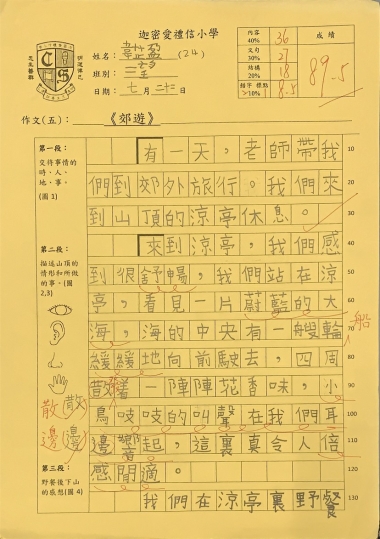 迦密愛禮信小學
姓名：
(24)
班別：三
日期：七月二十三日
內容 40% 36
文句 30% 27
結構 20% 18
錯字 標點 10% 8.5
成績
89.5
作文(五)：《郊遊》
第一段：
交待事情的時、人、地、事。
(圖1)
有一天，老師帶我 10
們到郊外旅行。我們來 20
到山頂的涼亭休息。 30
第二段：
描述山頂的情形和所做的事。(圖2,3)
來到涼亭，我們感 40
到很舒暢，我們站在涼 50
亭，看見一片蔚藍的大 60
海，海的中央有一艘輪 70
船
緩緩地向前駛去，四周 80
散着一陣陣花香味，小 90
散(散)
鳥吱吱的叫聲在我們耳 100
邊(邊)
邊響起，這裏真令人倍 110
感閒適。 120
第三段：
野餐後下山的感想(圖4)
我們在涼亭裏野餐 130